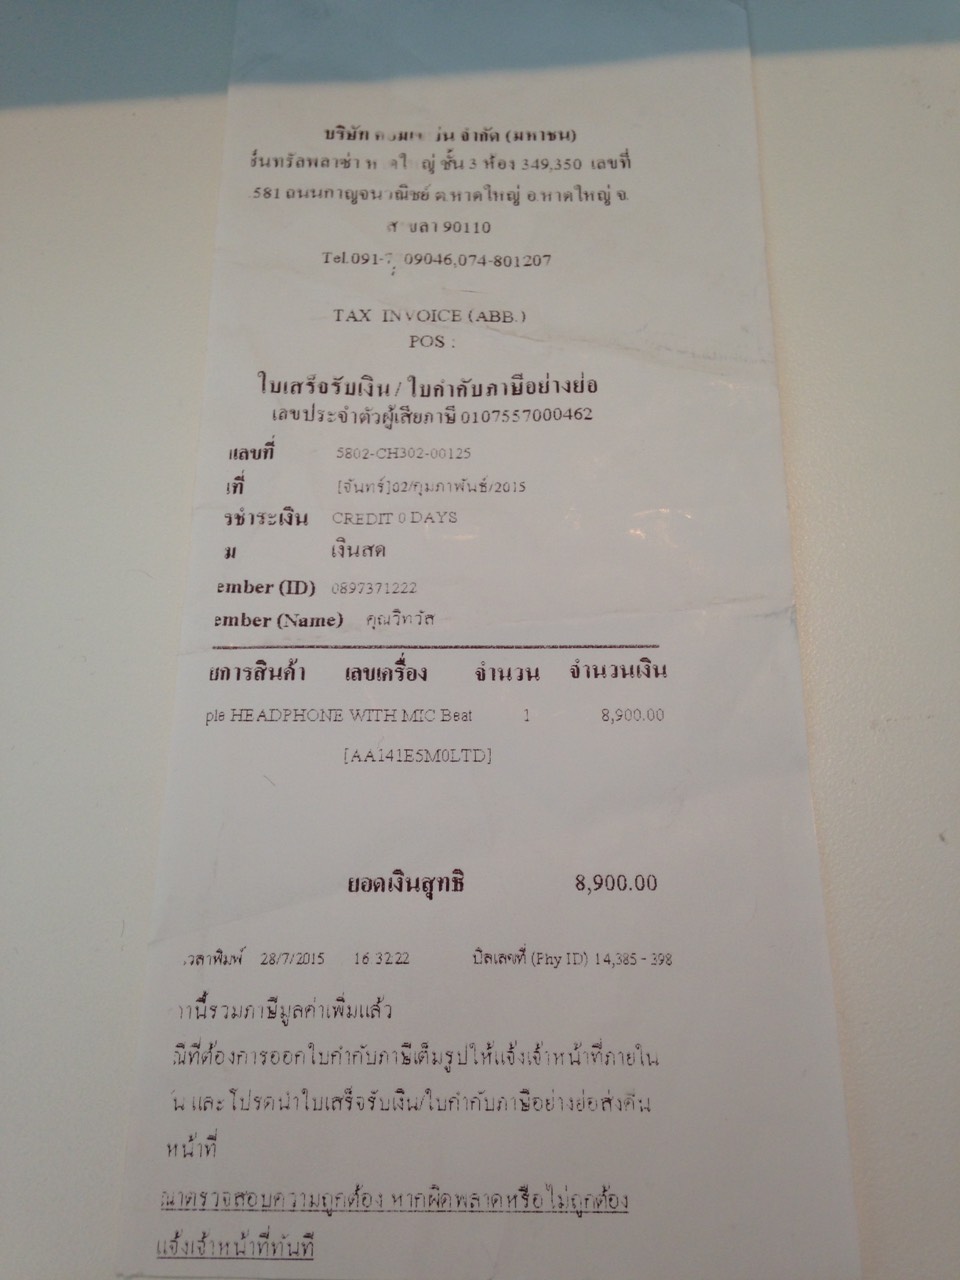 บริษัท จำกัด (มหาชน)
ซ็นทรัลพลาซ่า ชั้น 3 ห้อง 349,350 เลขที่
581 ถนนกาญจนวณิชย์ ต.หาดใหญ่ อ.หาดใหญ่ จ.
90110
Tel.091-7 09046,074-801207
TAX INVOICE (ABB.)
POS :
ใบเสร็จรับเงิน / ใบกำกับภาษีอย่างย่อ
เลขประจำตัวผู้เสียภาษี 0107557000462
เลขที่ 5802-CH302-00125
ที่ [จันทร์]02/กุมภาพันธ์/2015
รชำระเงิน CREDIT 0 DAYS
ม เงินสด
ember (ID) 0897371222
ember (Name) คุณวิทวัส
ยการสินค้า เลขเครื่อง จำนวน จำนวนเงิน
ple HEADPHONE WITH MIC Beat 1 8,900.00
[AA141E5M0LTD]
ยอดเงินสุทธิ 8,900.00
วลาพิมพ์ 28/7/2015 16:32:22 บิลเลขที่ (Phy ID) 14,385 - 398
านี้รวมภาษีมูลค่าเพิ่มแล้ว
ณีที่ต้องการออกใบกำกับภาษีเต็มรูปให้แจ้งเจ้าหน้าที่ภายใน
น และ โปรดนำใบเสร็จรับเงิน/ใบกำกับภาษีอย่างย่อส่งคืน
หน้าที่
ณาตรวจสอบความถูกต้อง หากผิดพลาดหรือไม่ถูกต้อง
แจ้งเจ้าหน้าที่ทันที